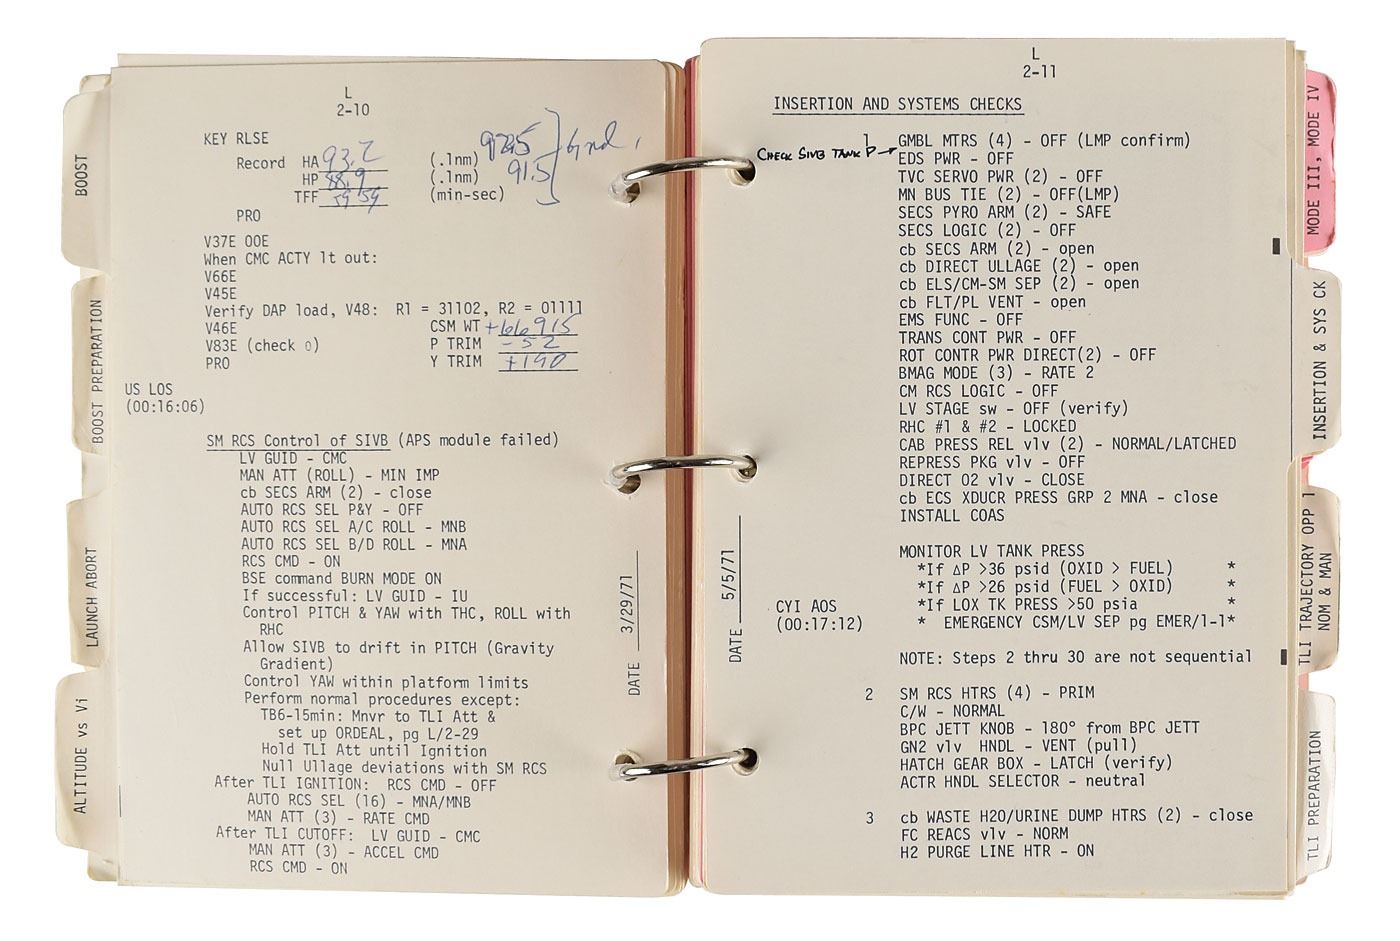 BOOST
BOOST PREPARATION
LAUNCH ABORT
ALTITUDE vs Vi
L
2-10
KEY RLSE
Record HA 93.2 (.1nm) 92.5 Gnd
HP 88.9 (.1nm) 91.5
TFF 59 59 (min-sec)
PRO
V37E 00E
When CMC ACTY lt out:
V66E
V45E
Verify DAP load, V48: R1 = 31102, R2 = 01111
V46E CSM WT +66915
V83E (check 0) P TRIM -52
PRO Y TRIM +190
US LOS
(00:16:06)
SM RCS Control of SIVB (APS module failed)
LV GUID - CMC
MAN ATT (ROLL) - MIN IMP
cb SECS ARM (2) - close
AUTO RCS SEL P&Y - OFF
AUTO RCS SEL A/C ROLL - MNB
AUTO RCS SEL B/D ROLL - MNA
RCS CMD - ON
BSE command BURN MODE ON
If successful: LV GUID - IU
Control PITCH & YAW with THC, ROLL with
RHC
Allow SIVB to drift in PITCH (Gravity
Gradient)
Control YAW within platform limits
Perform normal procedures except:
TB6-15min: Mnvr to TLI Att &
set up ORDEAL, pg L/2-29
Hold TLI Att until Ignition
Null Ullage deviations with SM RCS
After TLI IGNITION: RCS CMD - OFF
AUTO RCS SEL (16) - MNA/MNB
MAN ATT (3) - RATE CMD
After TLI CUTOFF: LV GUID - CMC
MAN ATT (3) - ACCEL CMD
RCS CMD - ON
DATE 3/29/71
L
2-11
INSERTION AND SYSTEMS CHECKS
1 GMBL MTRS (4) - OFF (LMP confirm)
CHECK SIVB TANK P → EDS PWR - OFF
TVC SERVO PWR (2) - OFF
MN BUS TIE (2) - OFF(LMP)
SECS PYRO ARM (2) - SAFE
SECS LOGIC (2) - OFF
cb SECS ARM (2) - open
cb DIRECT ULLAGE (2) - open
cb ELS/CM-SM SEP (2) - open
cb FLT/PL VENT - open
EMS FUNC - OFF
TRANS CONT PWR - OFF
ROT CONTR PWR DIRECT(2) - OFF
BMAG MODE (3) - RATE 2
CM RCS LOGIC - OFF
LV STAGE sw - OFF (verify)
RHC #1 & #2 - LOCKED
CAB PRESS REL vlv (2) - NORMAL/LATCHED
REPRESS PKG vlv - OFF
DIRECT O2 vlv - CLOSE
cb ECS XDUCR PRESS GRP 2 MNA - close
INSTALL COAS
MONITOR LV TANK PRESS
*If ΔP >36 psid (OXID > FUEL) *
*If ΔP >26 psid (FUEL > OXID) *
*If LOX TK PRESS >50 psia *
* EMERGENCY CSM/LV SEP pg EMER/1-1*
CYI AOS
(00:17:12)
NOTE: Steps 2 thru 30 are not sequential
2 SM RCS HTRS (4) - PRIM
C/W - NORMAL
BPC JETT KNOB - 180° from BPC JETT
GN2 vlv HNDL - VENT (pull)
HATCH GEAR BOX - LATCH (verify)
ACTR HNDL SELECTOR - neutral
3 cb WASTE H2O/URINE DUMP HTRS (2) - close
FC REACS vlv - NORM
H2 PURGE LINE HTR - ON
DATE 5/5/71
MODE III, MODE IV
INSERTION & SYS CK
TLI TRAJECTORY OPP 1
NOM & MAN
TLI PREPARATION